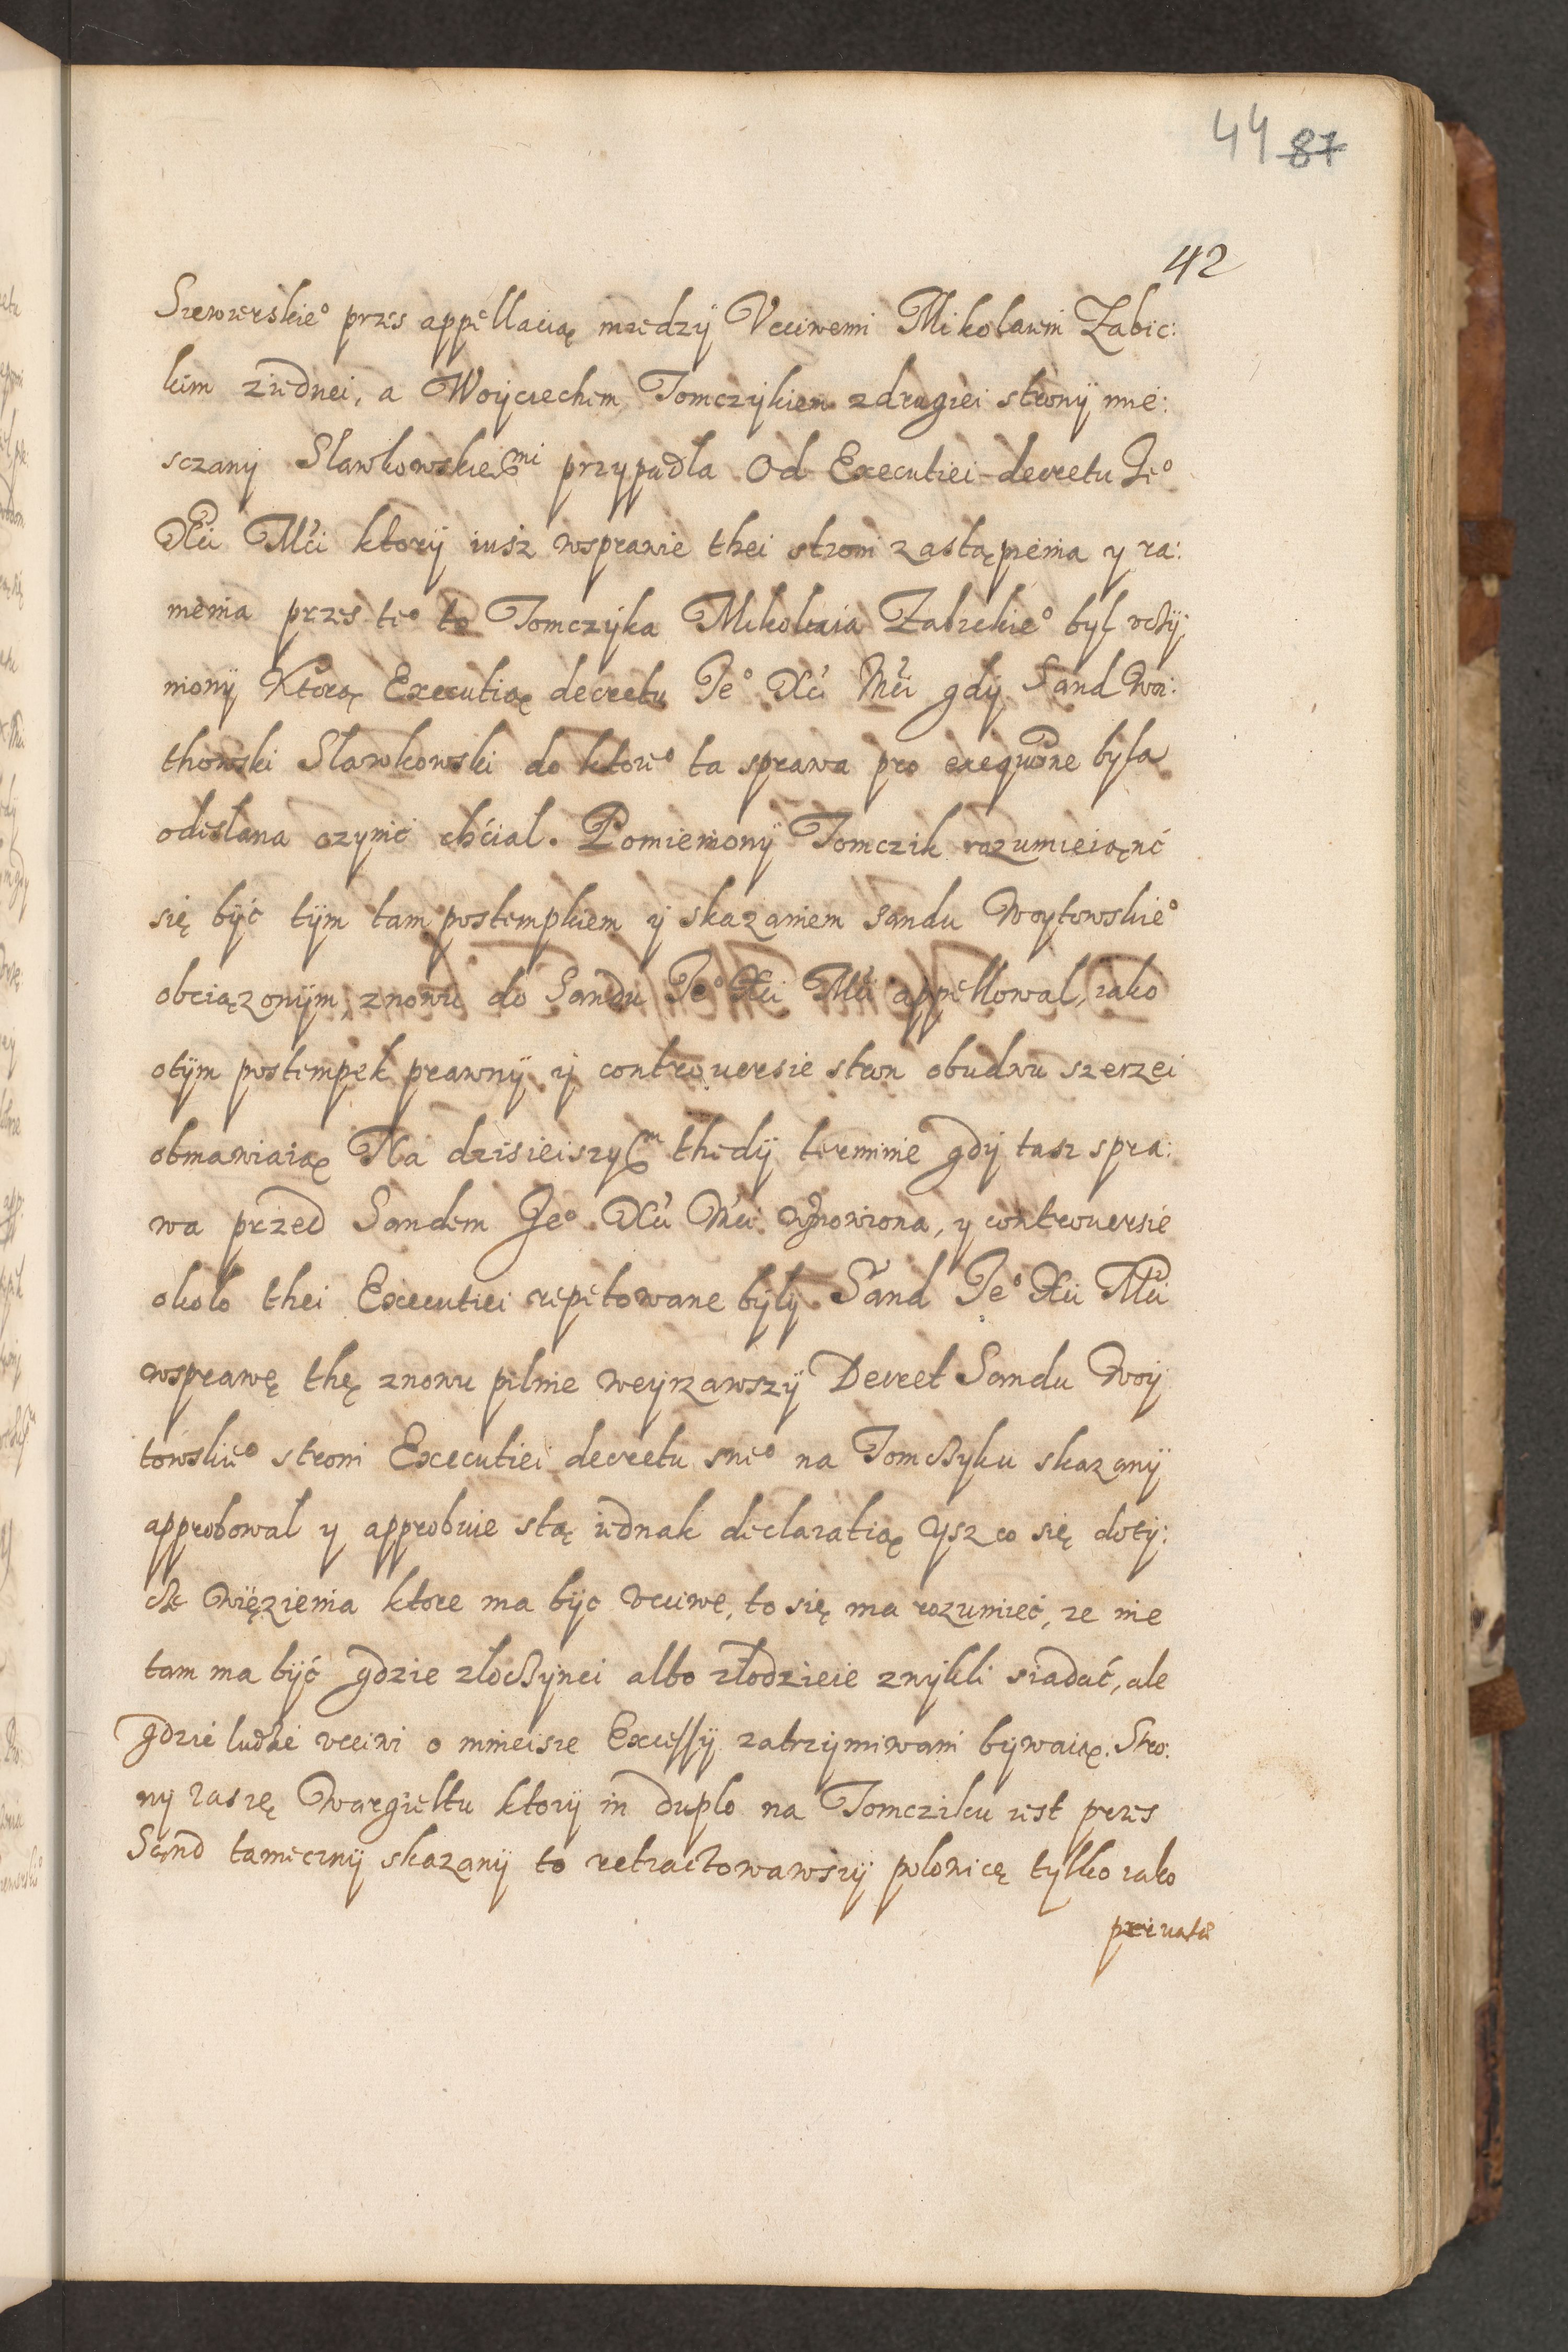 44 87
42
Siewierskie° przes appellacią miedzÿ Vcciwemi Mikolaiem Zabic:
kim ziednei, a Woÿciechem Tomczÿkiem zdrugiei stronÿ mie:
sczany Slawkowskiemi przypadla Od Executiei decretu Je°
Xci Mći ktorÿ iusz wsprawie thei stroni zastąpienia y ra:
mienia przes te° to Tomczÿka Mikolaia Zabickie° był vczÿ:
nionÿ Ktorą Executią decretu Je° Xći Mći gdÿ Sand Woi:
thowski Slawkowski do ktore° ta sprawa pro exequõne była
odesłana czynić chćial. Pomienionÿ Tomczik rozumieiąnć
się bÿć tÿm tam postempkiem ÿ skazaniem Sandu Woytowskie°
obciązonÿm, znowu do Sandu Je° Xći Mći appellowal, iako
otÿm postempek prawnÿ ÿ controuersie stron obudwu szerzei
obmawiaią Na dzisieiszym thedÿ terminie gdÿ tasz spra:
wa przed Sandem Je° Xći Mći wznowiona, y controuersie
około thei Executiei repetowane bÿłÿ. Sand Je° Xći Mći
wsprawę thę znowu pilnie weyrzawszÿ Decret Sandu Woÿ
towskie° stroni Executiei decretu sme° na Tomczyku skazanÿ
approbowal y approbuie stą iednak declaratią ysz co się dotÿ:
cze więzienia ktore ma bÿc vcciwe, to się ma rozumieć, ze nie
tam ma bÿć gdzie złoczÿnci albo złodzieie zwÿkli siadać, ale
gdzie ludzie vcciwi o mnieisze Excessÿ zatrzÿmiwani bÿwaią. Stro:
ny zasię Wargieltu ktorÿ in duplo na Tomcziku iest przes
Sąnd tamecznÿ skazanÿ to retractowawszÿ polowicę tylko iako
priuatæ